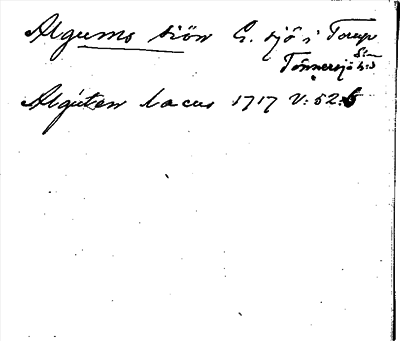 Algums siön G. sjö i Torup
Sn
Tönnersjö hd
Algúten lacus 1717 V: 52: 6